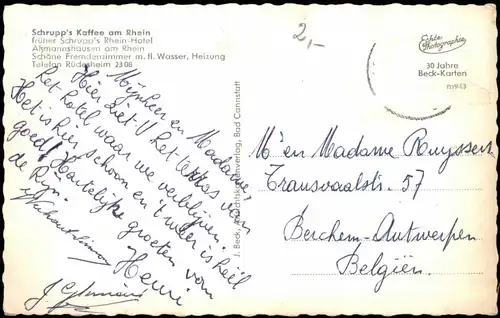 Schrupp's Kaffee am Rhein
früher Schrupp's Rhein-Hotel
Aßmannshausen am Rhein
Schöne Fremdenzimmer m. fl. Wasser, Heizung
Telefon Rüdesheim 2308
2,-
Echte
Photographie
30 Jahre
Beck-Karten
Mijnheer en Madame,
Hier ziet U het terras van
het hotel waar we verblijven.
Het is hier schoon en 't weer is heel
goed! Hartelijke groeten van
de Rijn.
Henri
J.
J. Beck, Ansichtskartenverlag, Bad Cannstatt
Mr en Madame Ruyssers
Transvaalstr. 57
Berchem-Antwerpen
Belgiën.